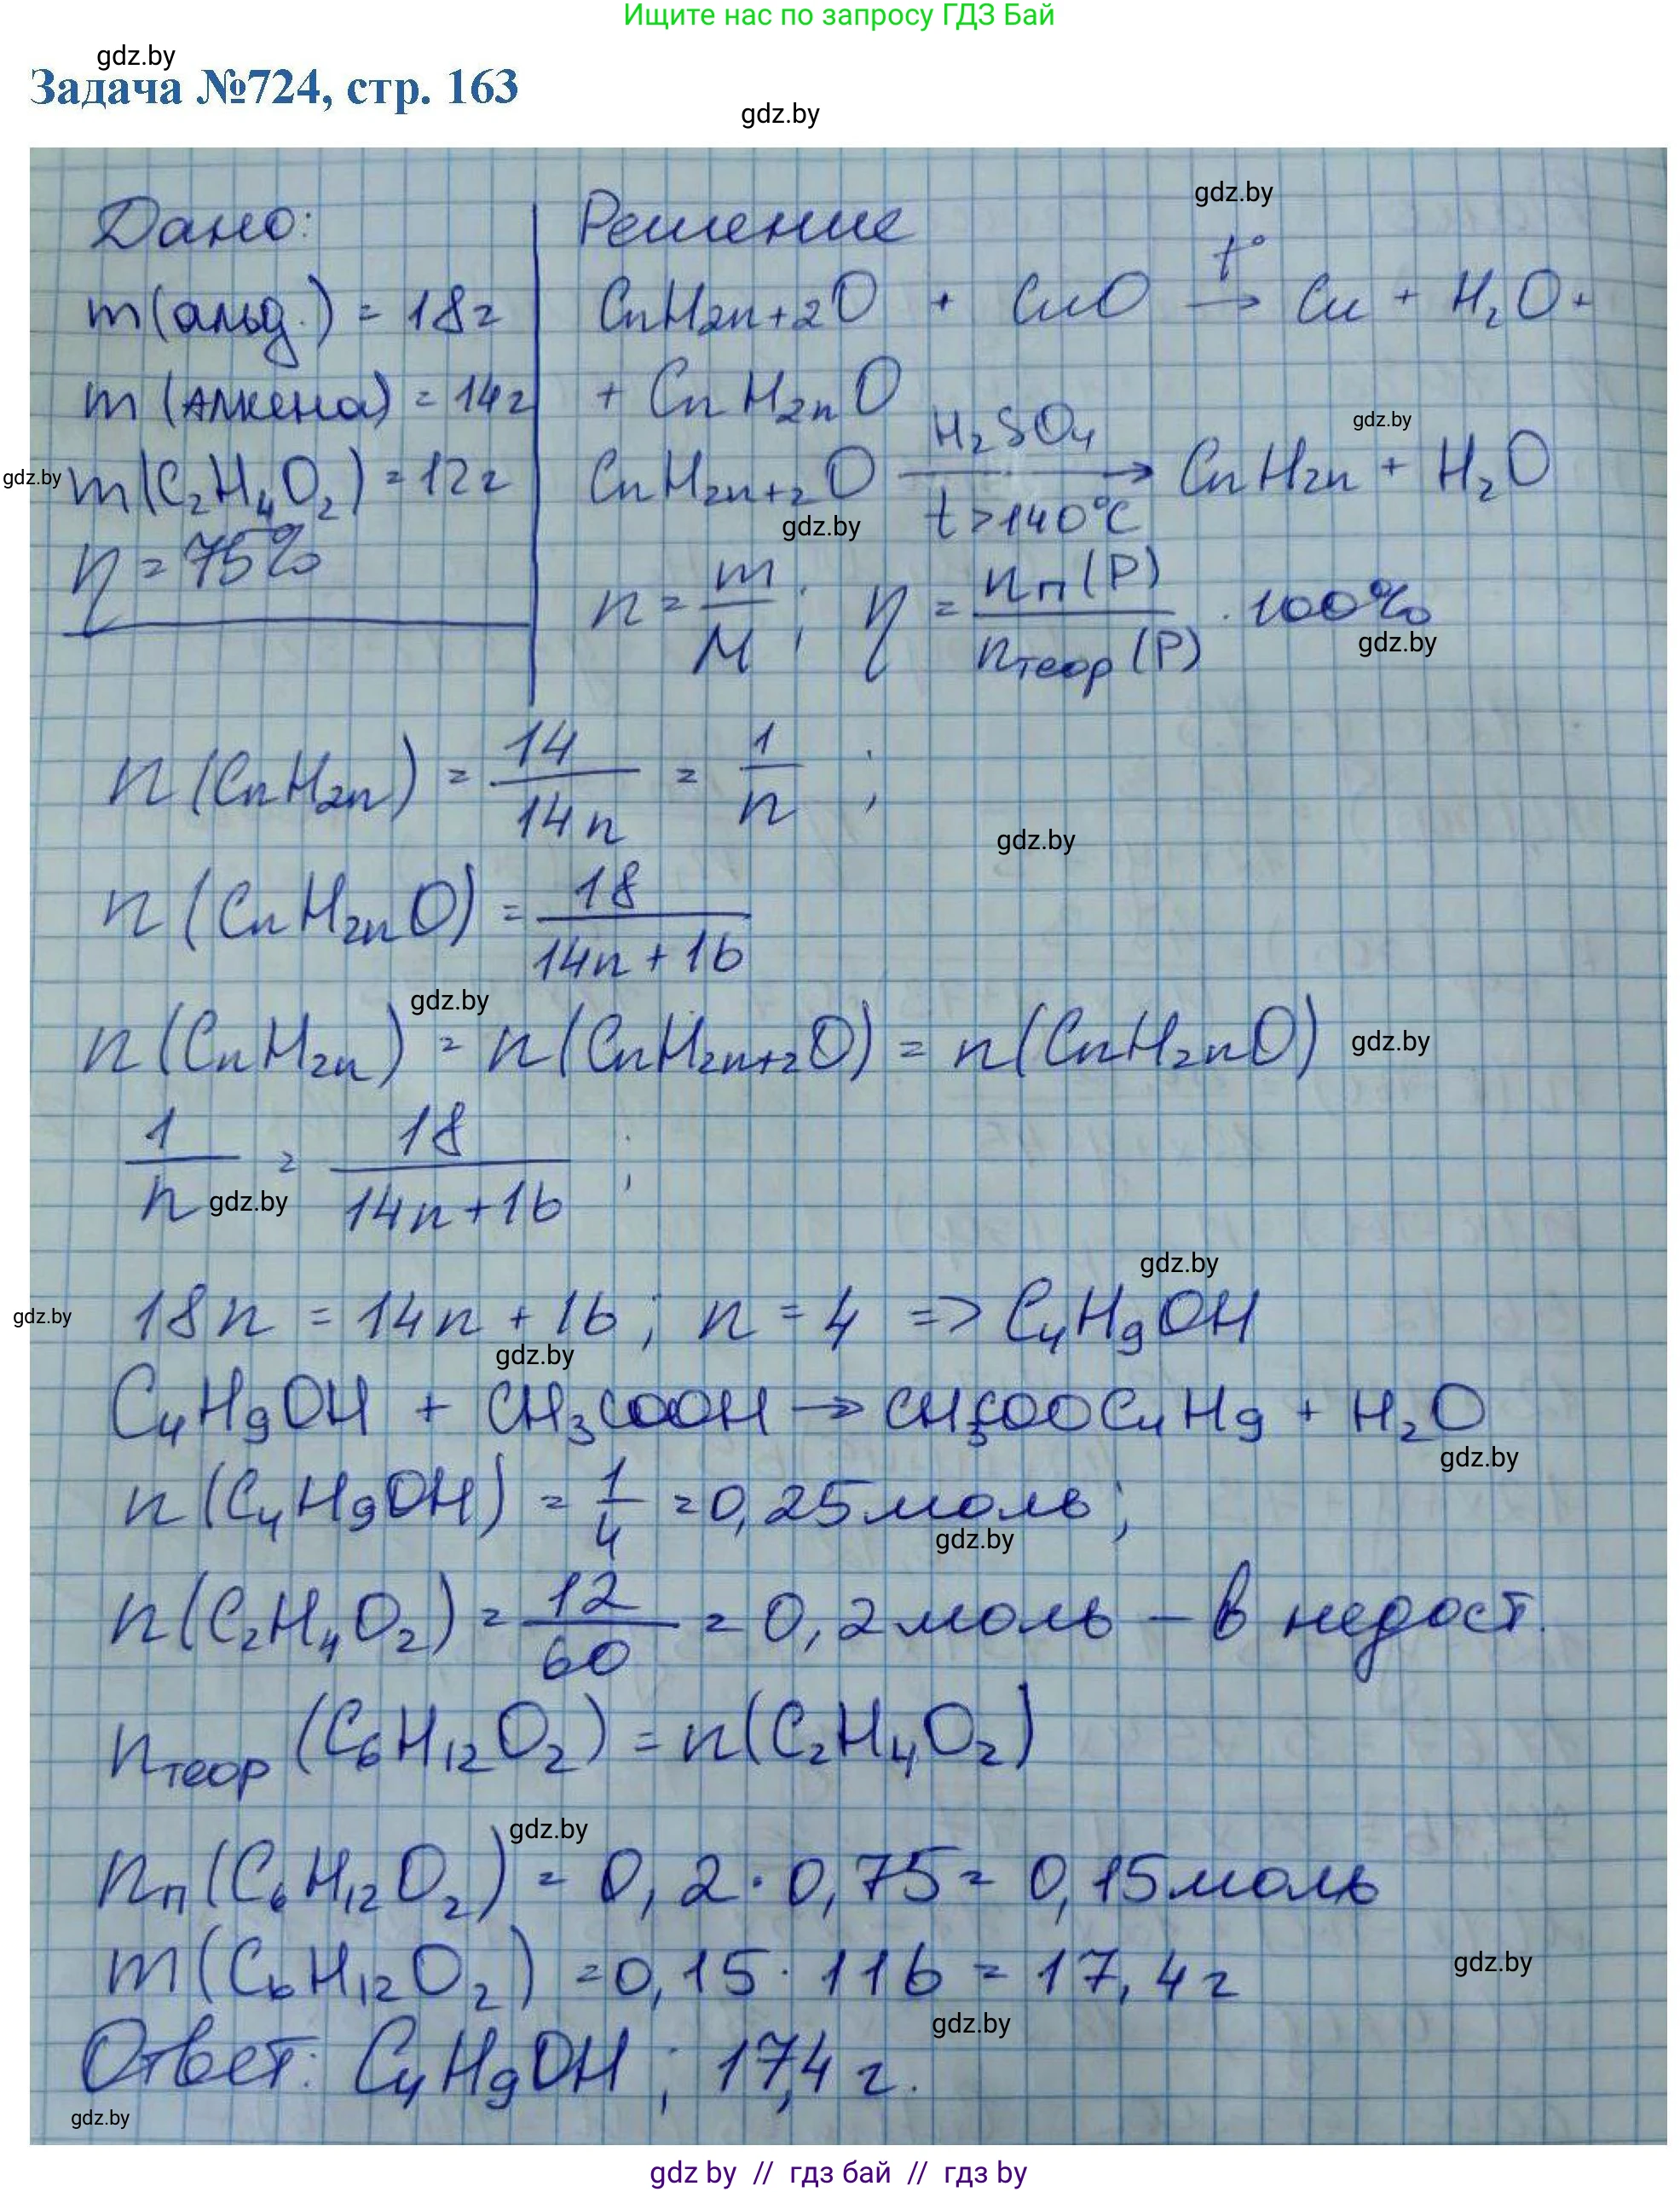 Ищите нас по запросу ГДЗ Бай
gdz.by
Задача №724, стр. 163
gdz.by
gdz.by
Дано: Решение
m(альд.) = 18г CnH2n+2O + CuO t°→ Cu + H₂O +
m(Алкена) = 14г + CnH2nO
gdz.by
gdz.by m(C₂H₄O₂) = 12г CnH2n+2O H₂SO₄ → t>140°C CnH2n + H₂O
gdz.by
η = 75%
n = m/M ; η = nп(P)/nтеор(P) · 100%
gdz.by
n(CnH2n) = 14/14n = 1/n ;
gdz.by
n(CnH2nO) = 18/14n+16
gdz.by
n(CnH2n) = n(CnH2n+2O) = n(CnH2nO) gdz.by
1/n = 18/14n+16 ;
gdz.by
gdz.by
gdz.by 18n = 14n + 16 ; n = 4 => C₄H₉OH
gdz.by
C₄H₉OH + CH₃COOH → CH₃COOC₄H₉ + H₂O
gdz.by
n(C₄H₉OH) = 1/4 = 0,25 моль ;
gdz.by
n(C₂H₄O₂) = 12/60 = 0,2 моль – в недост.
nтеор(C₆H₁₂O₂) = n(C₂H₄O₂)
gdz.by
nп(C₆H₁₂O₂) = 0,2 · 0,75 = 0,15 моль
m(C₆H₁₂O₂) = 0,15 · 116 = 17,4 г
gdz.by
gdz.by
Ответ: C₄H₉OH ; 17,4 г.
gdz.by
gdz by // гдз бай // гдз by